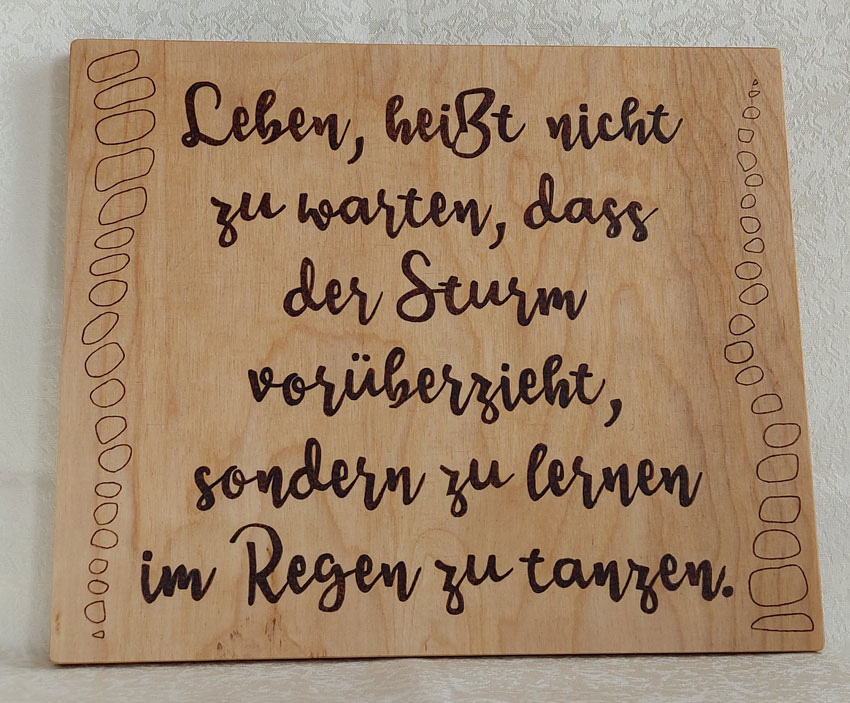 Leben, heißt nicht
zu warten, dass
der Sturm
vorüberzieht,
sondern zu lernen
im Regen zu tanzen.